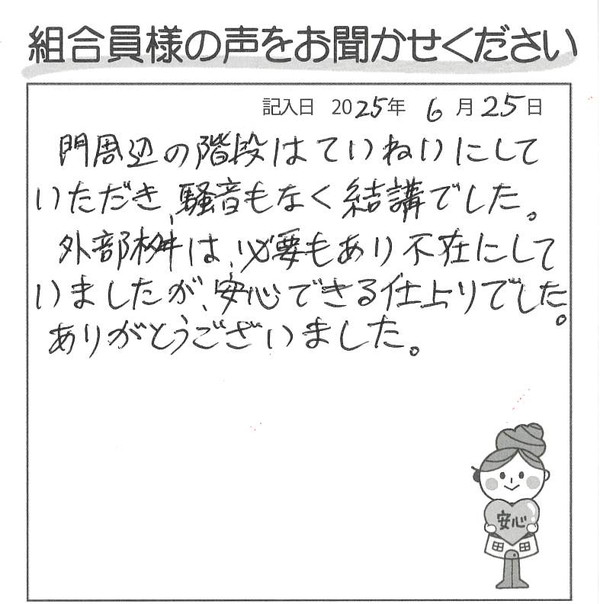 組合員様の声をお聞かせください
記入日 2025年 6月25日
門周辺の階段はていねいにして
いただき、騒音もなく結講でした。
外部桝は、必要もあり不在にして
いましたが、安心できる仕上りでした。
ありがとうございました。
安心